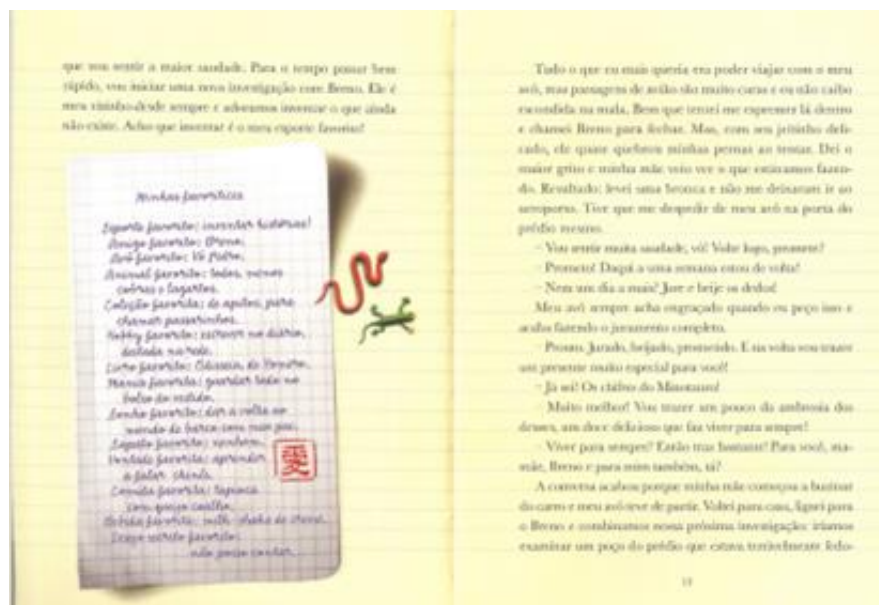 que vou sentir a maior saudade. Para o tempo passar bem
rápido, vou iniciar uma nova investigação com Breno. Ele é
meu vizinho desde sempre e adoramos inventar o que ainda
não existe. Acho que inventar é o meu esporte favorito!
Minhas favoritices
Esporte favorito: inventar histórias!
Amigo favorito: Breno.
Avô favorito: Vô Pedro.
Animal favorito: todos, menos
cobras e lagartos.
Coleção favorita: de apitos, para
chamar passarinhos.
Hobby favorito: escrever no diário,
deitada na rede.
Livro favorito: Odisseia, de Homero.
Mania favorita: guardar tudo no
bolso do vestido.
Sonho favorito: dar a volta ao
mundo de barco com meu pai.
Sapato favorito: nenhum.
Vontade favorita: aprender
a falar chinês.
Comida favorita: tapioca
com queijo coalho.
Bebida favorita: milk-shake de creme.
favorito:
não posso contar...
愛
Tudo o que eu mais queria era poder viajar com o meu
avô, mas passagens de avião são muito caras e eu não caibo
escondida na mala. Bem que tentei me espremer lá dentro
e chamei Breno para fechar. Mas, com seu jeitinho deli-
cado, ele quase quebrou minhas pernas ao tentar. Dei o
maior grito e minha mãe veio ver o que estávamos fazen-
do. Resultado: levei uma bronca e não me deixaram ir ao
aeroporto. Tive que me despedir de meu avô na porta do
prédio mesmo.
– Vou sentir muita saudade, vô! Volte logo, promete?
– Prometo! Daqui a uma semana estou de volta!
– Nem um dia a mais? Jure e beije os dedos!
Meu avô sempre acha engraçado quando eu peço isso e
acaba fazendo o juramento completo.
– Pronto. Jurado, beijado, prometido. E na volta vou trazer
um presente muito especial para você!
– Já sei! Os chifres do Minotauro!
– Muito melhor! Vou trazer um pouco da ambrosia dos
deuses, um doce delicioso que faz viver para sempre!
– Viver para sempre? Então traz bastante! Para você, ma-
mãe, Breno e para mim também, tá?
A conversa acabou porque minha mãe começou a buzinar
do carro e meu avô teve de partir. Voltei para casa, liguei para
o Breno e combinamos nossa próxima investigação: iríamos
examinar um poço do prédio que estava terrivelmente fedo-